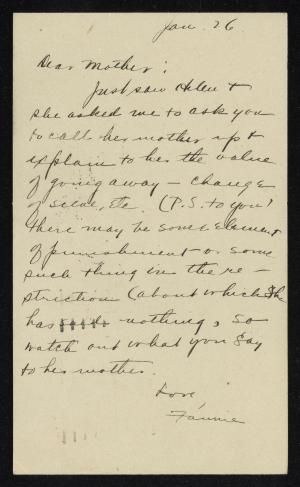 Jan. 26
Dear Mother:
Just saw Helen &
she asked me to ask you
to call her mother up &
explain to her the value
of going away – change
of scene, etc. (P.S. to you!
There may be some element
of punishment or some
such thing in the re-
striction (about which she
has said nothing, so
watch out what you say
to her mother.
Love,
Fannie